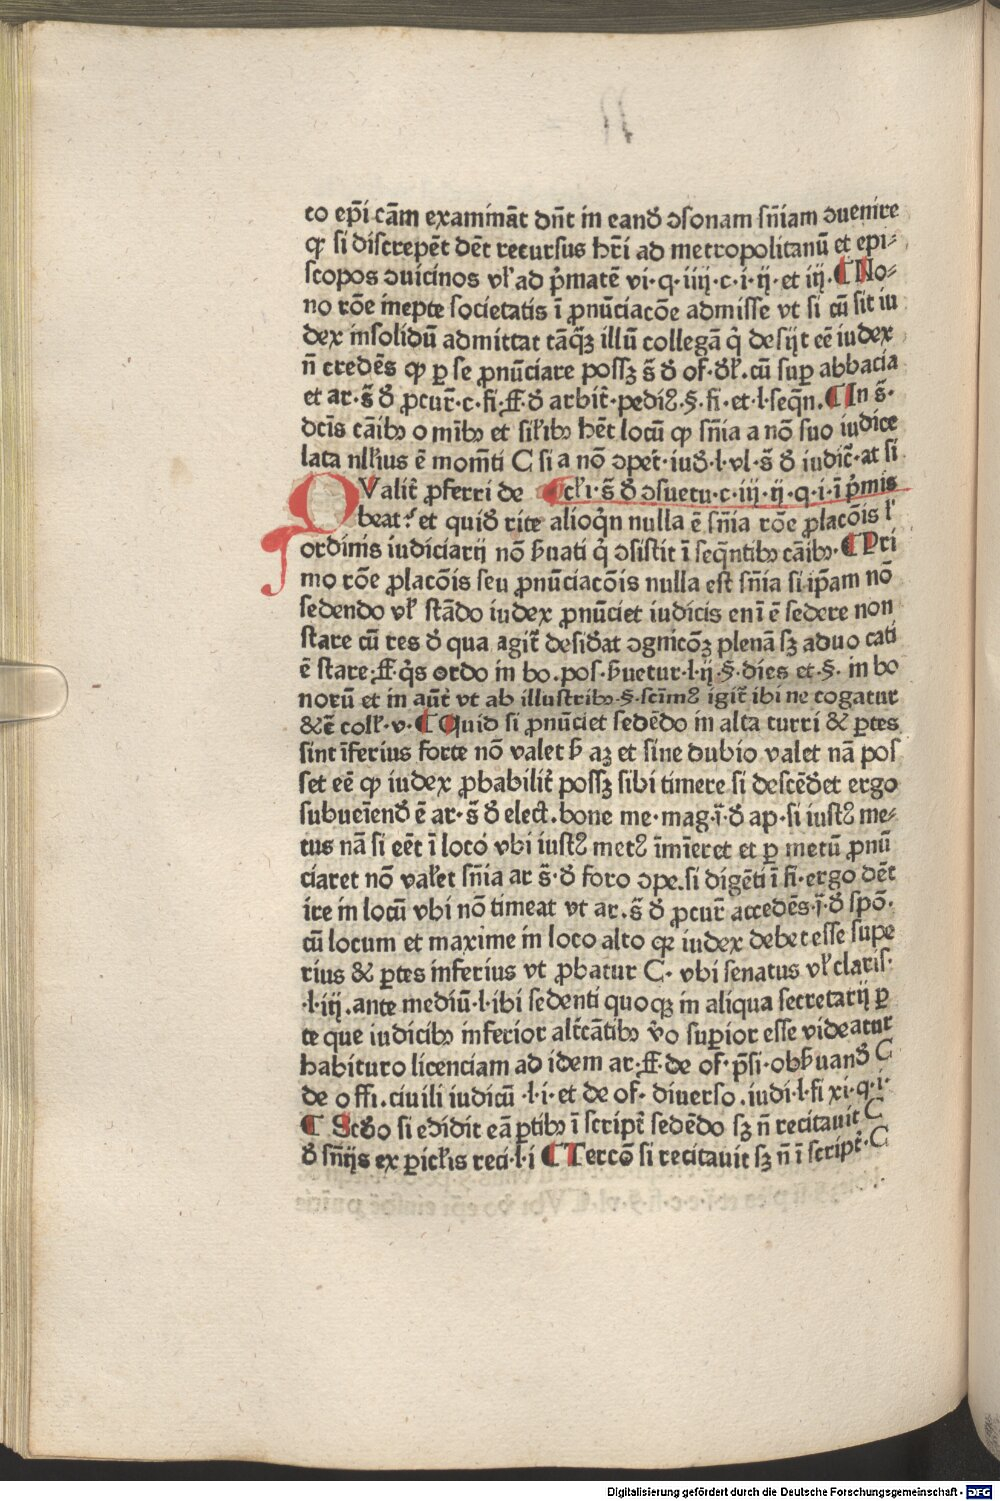 to epī cām examināt dn̄t in eand̄ ꝯsonam sn̄iam ꝯuenire
ꝙ si discrepēt dēt recursus hr̄i ad metropolitanū et epi⸗
scopos ꝯuicinos vl̄ ad p̄matē vi·q·iiij·c·i·ij·et iij·¶No⸗
no rōe inepte societatis ī ꝓnūciacōe admisse vt si cū sit iu
dex insolidū admittat tāqȝ illū collegā q̇ desijt eē iudex
n̄ credēs ꝙ ꝑ se ꝓnūciare possȝ s̄ d̄ of·d̄l·cū suꝑ abbacia
et ar·s̄ d̄ ꝓcur̄·c·fi·ff·d̄ arbit̄·pediꝰ·§·fi·et·l·seqn̄.¶In s̄·
dcīs cāibꝫ omībꝫ et sil̄ibꝫ hēt locū ꝙ sn̄ia a nō suo iudice
lata nll̄ius ē momēti C si a nō ꝯpet̄·iud̄·l·vl·s̄ d̄ iudic̄·at si
QValit̄ ꝓferri de ¶cl̄i·s̄ d̄ ꝯsuetu·c·iij·ij·q·i·ī p̄mis
beat? et quid rite alioqn̄ nulla ē sn̄ia rōe ꝓlacōis l̄
ordinis iudiciarij nō ẜuati q̇ ꝯsistit ī seqn̄tibꝫ cāibꝫ·¶Pri
mo rōe ꝓlacōis seu ꝓnūciacōis nulla est sn̄ia si ip̄am nō
sedendo vl̄ stādo iudex ꝓnūciet iudicis enī ē sedere non
stare cū res d̄ qua agit̄ desid̄at ꝯgnicōȝ plenā sȝ aduocati
ē stare·ff·q̇s ordo in bo.pos·ẜuetur·l·ij·§·dies et·§·in bo
norū et in aut̄ vt ab illustribꝫ·§·scīmꝰ igit̄ ibi ne cogatur
&c̄ coll·v·¶Quid si ꝓnūciet sedēdo in alta turri & ꝑtes
sint īferius forte nō valet ẜ aȝ et sine dubio valet nā pos
set eē ꝙ iudex ꝓbabilit̄ possȝ sibi timere si descēd̄et ergo
subueīend̄ ē ar·s̄ d̄ elect̄.bone me·mag·ī·d̄ ap·si iustꝰ me⸗
tus nā si eēt ī loco vbi iustꝰ metꝰ īmīeret et ꝑ metū ꝓnū
ciaret nō val̄et sn̄ia ar s̄·d̄ foro ꝯpe.si digēti ī fi·ergo dēt
ire in locū vbi nō timeat vt ar.s̄ d̄ ꝓcur̄ accedēs·ī·d̄ spō·
cū locum et maxime in loco alto qr iudex debet esse supe
rius & ꝑtes inferius vt ꝓbatur C· vbi senatus vl̄ claris·
·l·iij.ante mediū·l·ibi sedenti quoqȝ in aliqua secretarij ꝑ
te que iudicibꝫ inferior alt̄cātibꝫ v̄o suꝑior esse videatur
habituro licenciam ad idem ar·ff·de of·p̄si·obẜuand̄ C
de offi.ciuili iudicū ·l·i·et de of· diuerso.iudi·l·fi xi·q·i·
¶ Scd̄o si edidit eā ꝑtibꝫ ī script̄ sedēdo sȝ n̄ recitauit C
d̄ sn̄ijs ex ꝑicl̄is reci·l·i ¶Tercō si recitauit sȝ n̄ ī script̄·C
Digitalisierung gefördert durch die Deutsche Forschungsgemeinschaft - DFG